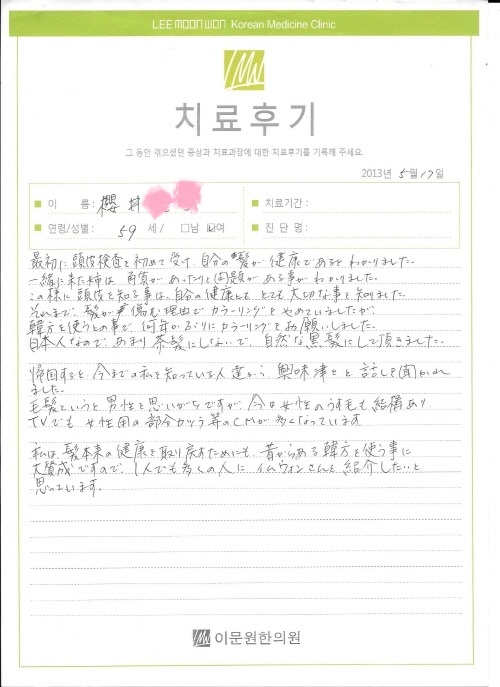 LEE MOON WON Korean Medicine Clinic
치료후기
그 동안 겪으셨던 증상과 치료과정에 대한 치료후기를 기록해 주세요.
2013년 5월 17일
이 름 : 櫻井
치료기간 :
연령/성별 : 59 세 / □남 ☑여
진 단 명 :
最初に頭皮検査を初めて受け、自分の髪が健康であるとわかりました。
一緒に来た姉は、角質があったりと問題がある事がわかりました。
この様に頭皮を知る事は、自分の健康にも とても大切な事と知りました。
それまで、髪が傷む理由でカラーリングをやめていましたが、
韓方を使うとの事で、何年かぶりにカラーリングをお願いしました。
日本人なので、あまり茶髪にしないで、自然な黒髪にして頂きました。
帰国すると、今までの私を知っている人達から、興味津々と話しを聞かれ
ました。
毛髪というと男性を思いがちですが、今は女性のうす毛も結構あり
TVでも女性用の部分かつら等のCMが多くなっています
私は、髪本来の健康を取り戻すためにも、昔からある韓方を使う事に
大賛成ですので、1人でも多くの人に イムウォンさんを紹介したいと
思っています。
이문원한의원